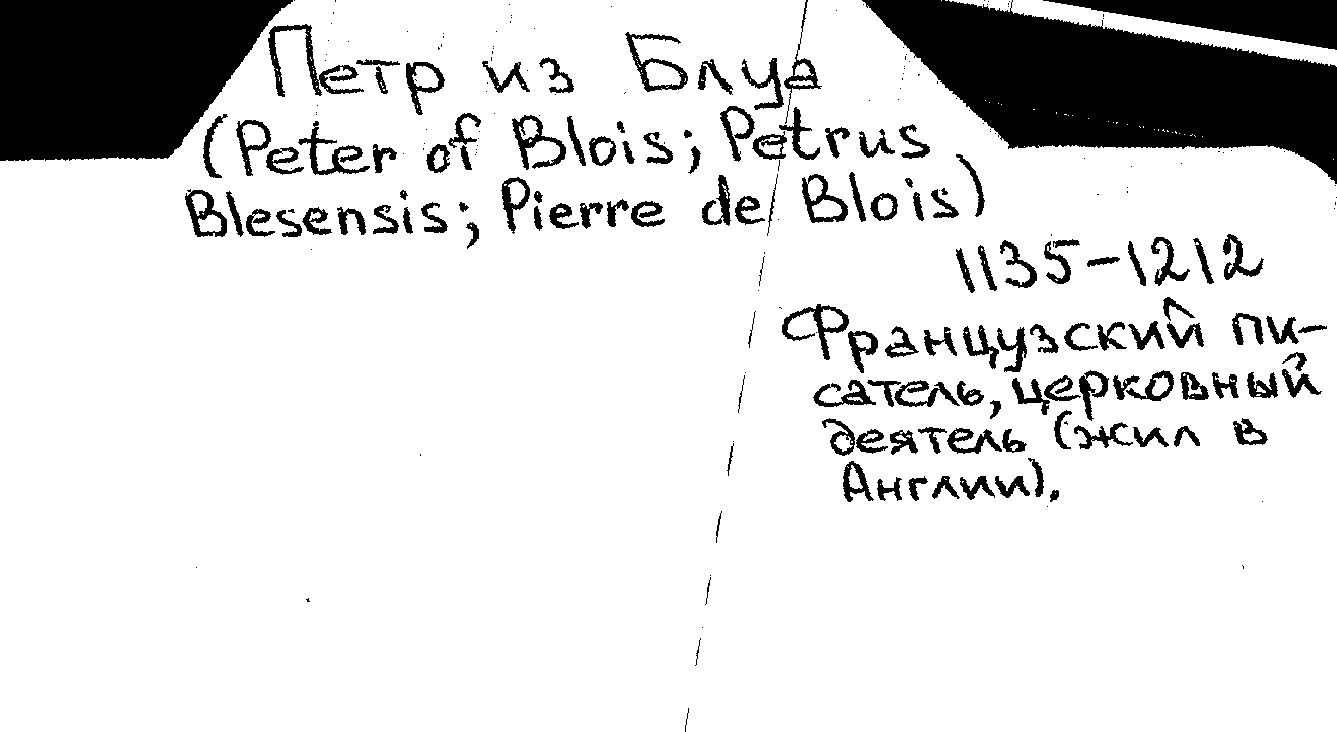 Петр из Блуа
(Peter of Blois; Petrus
Blesensis; Pierre de Blois)
1135-1212
Французский пи-
сатель, церковный
деятель (жил в
Англии).